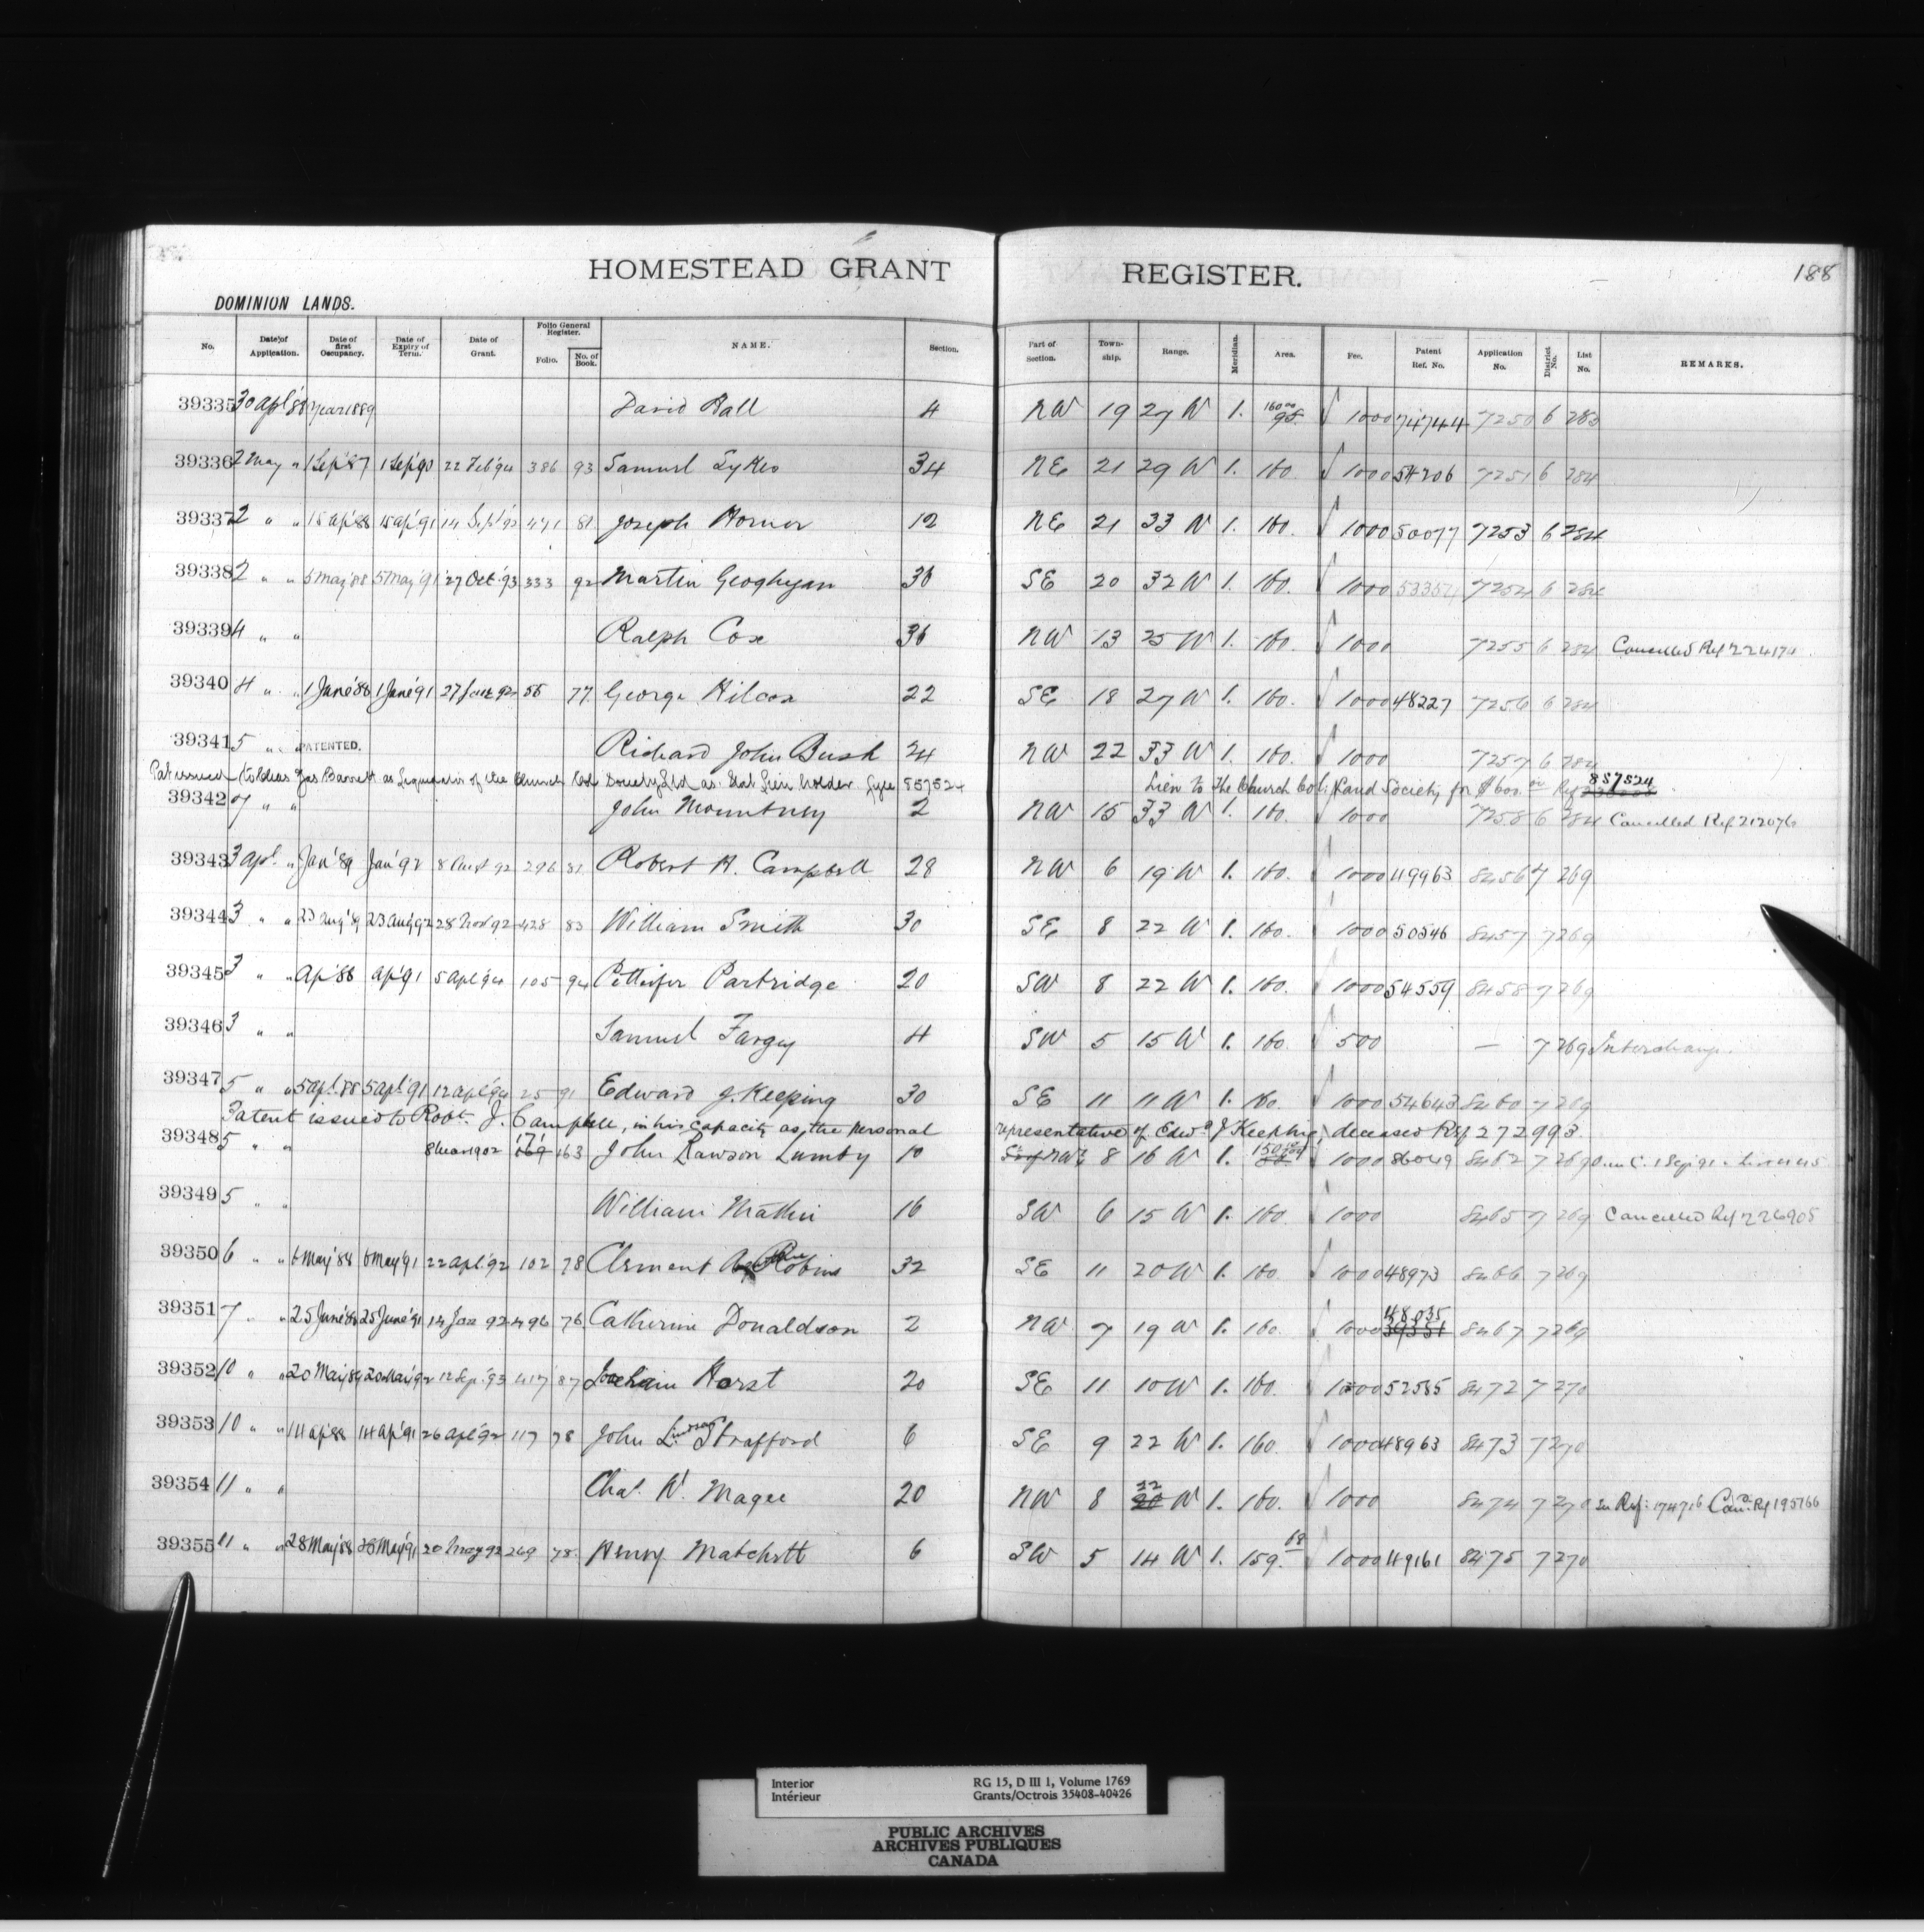 HOMESTEAD GRANT REGISTER. 188
DOMINION LANDS.
No. Date of Application. Date of first Occupancy. Date of Expiry of Term. Date of Grant. Folio General Register. Folio. No. of Book. NAME. Section. Part of Section. Township. Range. Meridian. Area. Fee. Patent Ref. No. Application No. District No. List No. REMARKS.
39335 30 apl '88 Year 1889 David Hall 4 NW 19 27 W 1. 160 00 1000 74744 7250 6 283
39336 2 May " 1 Sep '87 1 Sep '90 22 Feb '94 386 93 Samuel Sykes 34 NE 21 29 W 1. 160. 1000 54206 7251 6 284
39337 2 " " 15 ap '88 15 ap '91 14 Sept '92 471 81 Joseph Horner 12 NE 21 33 W 1. 160. 1000 50077 7253 6 284
39338 2 " " 5 May '88 5 May '91 27 Oct '93 333 92 Martin Geoghegan 36 SE 20 32 W 1. 160. 1000 53354 7254 6 284
39339 4 " " Ralph Cox 36 NW 13 25 W 1. 160. 1000 7255 6 284 Cancelled Ref 224174
39340 4 " " 1 June '88 1 June '91 27 92 55 77 George Hilcox 22 SE 18 27 W 1. 160. 1000 48227 7256 6 284
39341 5 " " PATENTED. Richard John Bush 24 NW 22 33 W 1. 160. 1000 7257 6 284
Pat issued Jas Barrett as Liquidator of the Church Col. Society Ltd as Stat Lien holder 857524 Lien to The Church Col. Land Society for $600.00 Ref 857524
39342 7 " " John Mountney 2 NW 15 33 W 1. 160. 1000 7258 6 284 Cancelled Ref 212076
39343 3 apl. " Jan '89 Jan '92 8 92 296 81 Robert H. Campbell 28 NW 6 19 W 1. 160. 1000 49963 8456 7 269
39344 3 " " 23 Aug '89 23 Aug '92 28 Nov 92 428 83 William Smith 30 SE 8 22 W 1. 160. 1000 50546 8457 7 269
39345 3 " " Ap '88 ap '91 5 apl '94 105 94 Pettifer Partridge 20 SW 8 22 W 1. 160. 1000 54559 8458 7 269
39346 3 " " Samuel Fargey 4 SW 5 15 W 1. 160 500 — 7 269 Interchange.
39347 5 " " 5 apl. 88 5 apl. '91 12 apl '94 25 91 Edward J. Keeping 30 SE 11 11 W 1. 160. 1000 54643 8460 7 269
Patent issued to Robt. J. Campbell, in his capacity as the personal representative of Edwd J Keeping, deceased Ref 272993.
39348 5 " " 8 Mar 1902 171 163 John Rawson Lumby 10 NW 8 16 W 1. 150 1000 86049 8462 7 269
39349 5 " " William Mathie 16 SW 6 15 W 1. 160. 1000 8465 7 269 Cancelled Ref 226905
39350 6 " " 6 May '88 6 May '91 22 apl '92 102 78 Clement Robins 32 SE 11 20 W 1. 160 1000 48973 8466 7 269
39351 7 " " 25 June '88 25 June '91 14 Jan 92 496 76 Catherine Donaldson 2 NW 7 19 W 1. 160. 1000 48035 39351 8467 7 269
39352 10 " " 20 May '89 20 May '92 12 Sep. '93 417 87 Joachim Horst 20 SE 11 10 W 1. 160. 1000 52585 8472 7 270
39353 10 " " 14 ap '88 14 ap '91 26 apl '92 117 78 John Lindsay Strafford 6 SE 9 22 W 1. 160. 1000 48963 8473 7 270
39354 11 " " Chas. W. Magee 20 NW 8 22 20 W 1. 160. 1000 8474 7 270 Ref: 174716 Cand. Ref 195766
39355 11 " " 28 May '88 28 May '91 20 May 92 249 78. Henry Matchett 6 SW 5 14 W 1. 159. 68 1000 49161 8475 7 270
Interior RG 15, D III 1, Volume 1769
Intérieur Grants/Octrois 35408-40426
PUBLIC ARCHIVES
ARCHIVES PUBLIQUES
CANADA